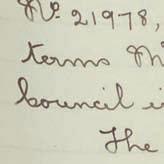 No. 21978,
terms Mr
council i
The